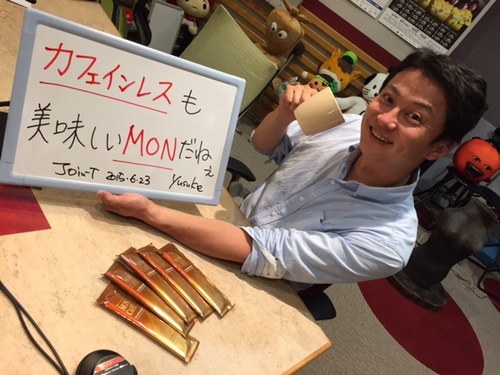 カフェインレスも
美味しいMONだねぇ
JOinT 2015.6.23 Yusuke